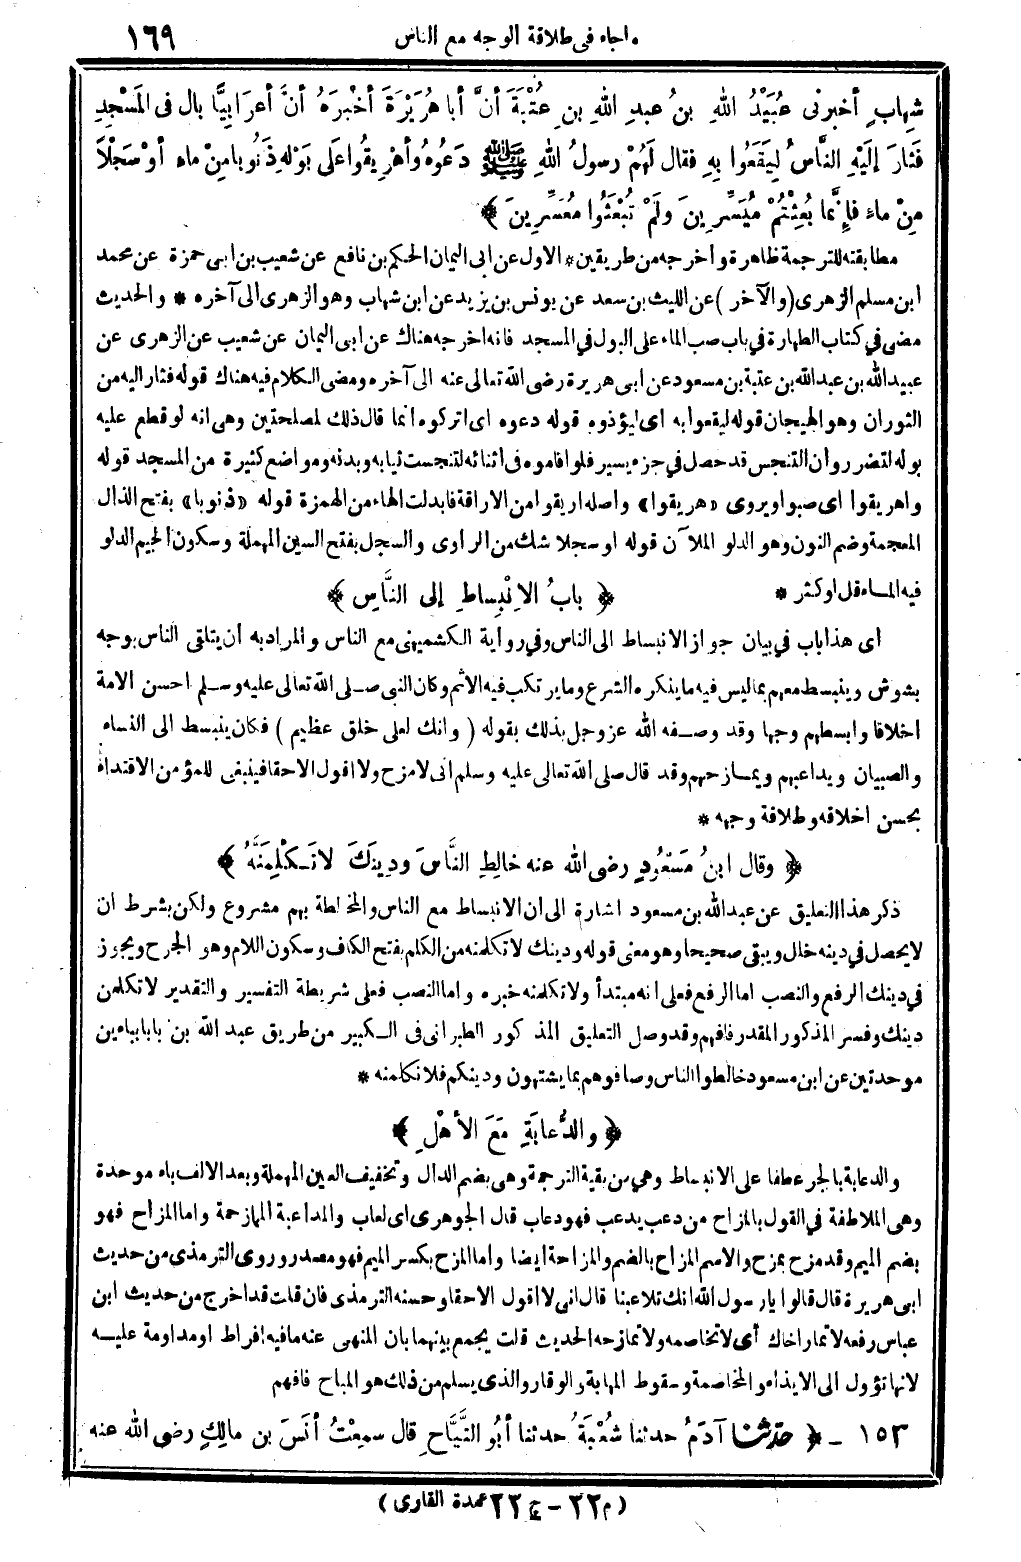 ماجاء فى طلاقة الوجه مع الناس ١٦٩
شِهابٍ أخبرنى عُبَيْدُ اللهِ بنُ عبدِ اللهِ بنِ عُتْبَةَ أنَّ أبا هُرَيْرَةَ أخْبرَهُ أنَّ أعرَابِيًّا بال فى المَسْجِدِ
فَثارَ إلَيْهِ النَّاسُ لِيَقَعُوا بِهِ فقال لَهُمْ رسولُ اللهِ ﷺ دَعُوهُ وأهْرِيقُوا عَلَى بَوْلِهِ ذَنُوبا مِنْ ماءٍ أوْ سَجْلاً
مِنْ ماءٍ فإنَّما بُعِثْتُمْ مُيَسِّرِينَ ولَمْ تُبْعَثُوا مُعَسِّرِينَ ﴾
مطابقته للترجمة ظاهرة وأخرجه من طريقين * الاول عن ابى اليمان الحكم بن نافع عن شعيب بن ابى حمزة عن محمد
ابن مسلم الزهرى (والآخر) عن الليث بن سعد عن يونس بن يزيد عن ابن شهاب وهو الزهرى الى آخره * والحديث
مضى في كتاب الطهارة في باب صب الماء على البول في المسجد فانه اخرجه هناك عن ابى اليمان عن شعيب عن الزهرى عن
عبيد الله بن عبد الله بن عتبة بن مسعود عن ابى هريرة رضى الله تعالى عنه الى آخره ومضى الكلام فيه هناك قوله فثار اليه من
الثوران وهو الهيجان قوله ليقعوا به اى ليؤذوه قوله دعوه اى اتركوه انما قال ذلك لمصلحتين وهى انه لو قطع عليه
بوله لتضرر وأن التنجس قد حصل في جزء يسير فلو اقاموه فى أثنائه لتنجست ثيابه وبدنه ومواضع كثيرة من المسجد قوله
واهريقوا اى صبوا ويروى «هريقوا» واصله اريقوا من الاراقة فابدلت الهاء من الهمزة قوله «ذنوبا» بفتح الذال
المعجمة وضم النون وهو الدلو الملآن قوله او سجلا شك من الراوى والسجل بفتح السين المهملة وسكون الجيم الدلو
فيه الماء قل او كثر *
﴿ بابُ الاِنْبِساطِ إلى النَّاسِ ﴾
أى هذا باب في بيان جواز الانبساط الى الناس وفي رواية الكشميهنى مع الناس والمراد به أن يتلقى الناس بوجه
بشوش وينبسط معهم بما ليس فيه ما ينكره الشرع وما يرتكب فيه الاثم وكان النبى صلى الله تعالى عليه وسلم احسن الامة
اخلاقا وابسطهم وجها وقد وصفه الله عز وجل بذلك بقوله (وانك لعلى خلق عظيم) فكان ينبسط الى النساء
والصبيان ويداعبهم ويمازحهم وقد قال صلى الله تعالى عليه وسلم انى لامزح ولا اقول الا حقا فينبغى للمؤمن الاقتداء
بحسن اخلاقه وطلاقة وجهه *
﴿ وقال ابنُ مَسْعُودٍ رضى الله عنه خالِطِ النَّاسَ ودِينَكَ لاتَكْلِمَنَّهُ ﴾
ذكر هذا التعليق عن عبد الله بن مسعود اشارة الى ان الانبساط مع الناس والمخالطة بهم مشروع ولكن بشرط ان
لا يحصل في دينه خلل ويبقى صحيحا وهو معنى قوله ودينك لا تكلمنه من الكلم بفتح الكاف وسكون اللام وهو الجرح ويجوز
في دينك الرفع والنصب اما الرفع فعلى انه مبتدأ ولا تكلمنه خبره واما النصب فعلى شريطة التفسير والتقدير لا تكلمن
دينك وفسر المذكور المقدر فافهم وقد وصل التعليق المذكور الطبرانى فى الكبير من طريق عبد الله بن باباه بباءين
موحدتين عن ابن مسعود خالطوا الناس وصافوهم بما يشتهون ودينكم فلا تكلمنه *
﴿ والدُّعابَةِ مَعَ الأهْلِ ﴾
والدعابة بالجر عطفا على الانبساط وهي من بقية الترجمة وهى بضم الدال وتخفيف العين المهملة وبعد الالف باء موحدة
وهى الملاطفة في القول بالمزاح من دعب يدعب فهو دعاب قال الجوهرى اى لعاب والمداعبة الممازحة واما المزاح فهو
بضم الميم وقد مزح يمزح والاسم المزاح بالضم والمزاحة ايضا واما المزح بكسر الميم فهو مصدر وروى الترمذى من حديث
ابى هريرة قال قالوا يا رسول الله انك تلاعبنا قال انى لا اقول الا حقا وحسنه الترمذى فان قلت قد اخرج من حديث ابن
عباس رفعه لا تمار اخاك أى لا تخاصمه ولا تمازحه الحديث قلت يجمع بينهما بان المنهى عنه ما فيه إفراط او مداومة عليه
لانها تؤول الى الايذاء والمخاصمة وسقوط المهابة والوقار والذى يسلم من ذلك هو المباح فافهم
١٥٣ ـ ﴿ حدّثنا آدَمُ حدثنا شُعْبَةُ حدثنا أبُو التَّيَّاحِ قال سمِعْتُ أنَسَ بن مالِكٍ رضى الله عنه
(م ٢٢ – ج ٢٢ عمدة القارى)